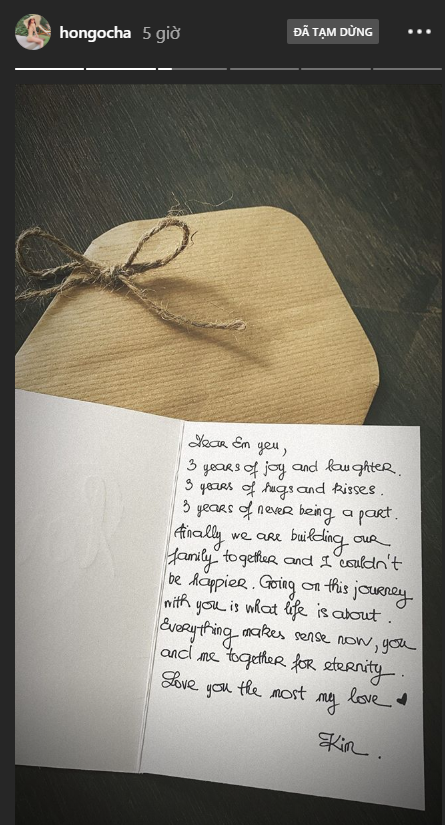 hongocha 5 giờ
ĐÃ TẠM DỪNG
Dear Em yeu,
3 years of joy and laughter.
3 years of hugs and kisses.
3 years of never being a part.
Finally we are building our
family together and I couldn't
be happier. Going on this journey
with you is what life is about.
Everything makes sense now, you
and me together for eternity.
Love you the most my love ♥
Kim.